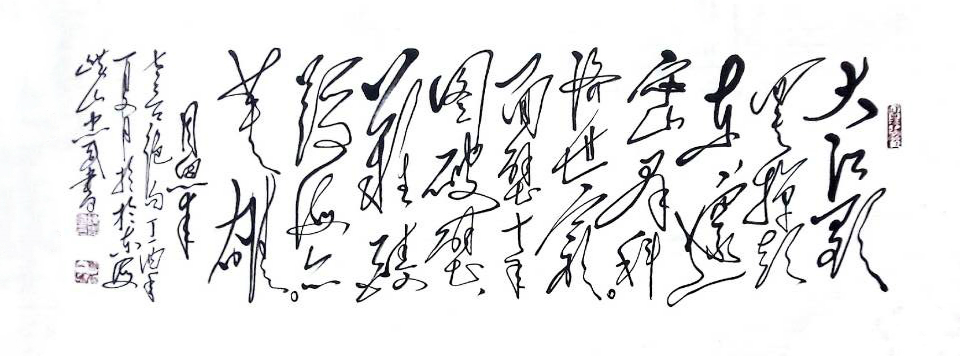 大江歌
罢掉头
东邃
密群科
济世穷。
面壁十年
图破壁、
难酬
蹈海亦
英雄。
周恩来
七言绝句丁酉年
夏月於
山书